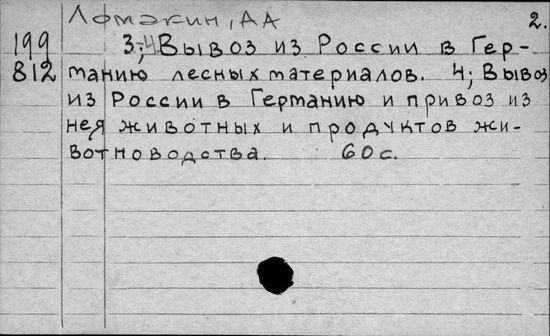 Ломакин, АА 2.
199 3;4. Вывоз из России в Гер-
812 манию лесных материалов. 4; Вывоз
из России в Германию и привоз из
нея животных и продуктов жи-
вотноводства. 60 с.